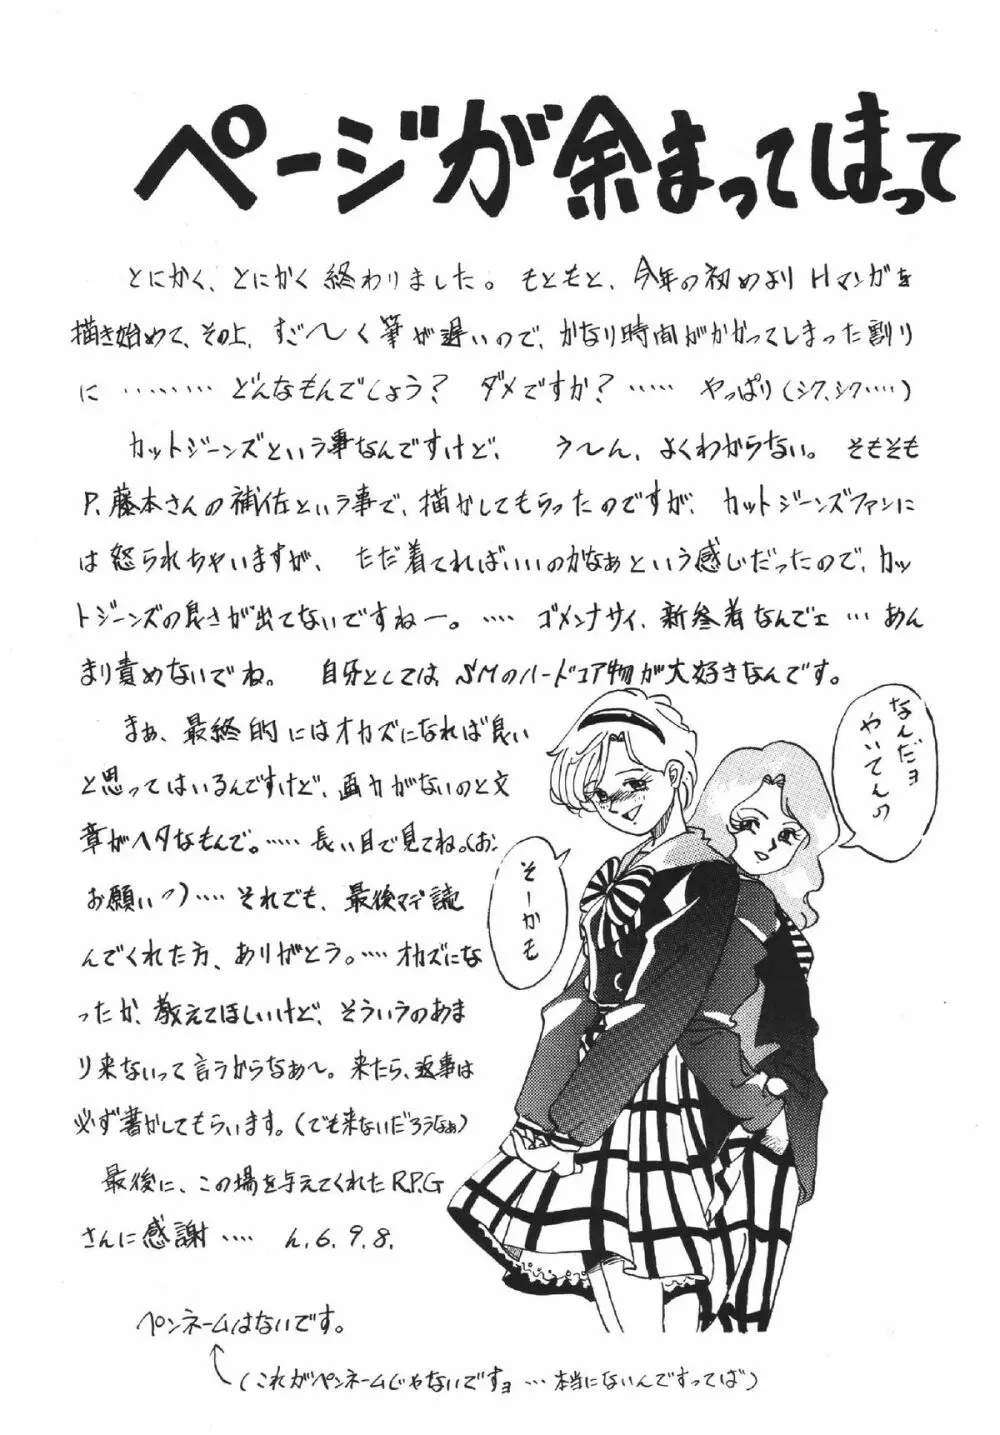 ページが余まってしまって
とにかく、とにかく終わりました。もともと、今年の初めよりHマンガを
描き始めて、その上、すご〜く筆が遅いので、かなり時間がかかってしまった割り
に………どんなもんでしょう? ダメですか?…… やっぱり(シク、シク……)
カットジーンズという事なんですけど、 う〜ん、よくわからない。そもそも
P.藤本さんの補佐という事で、描かしてもらったのですが、カットジーンズファンに
は怒られちゃいますが、 ただ着てればいいのかなぁという感じだったので、カッ
トジーンズの良さが出てないですねー。…. ゴメンナサイ、新参者なんでェ…あん
まり責めないでね。 自分としては、SMのハードコア物が大好きなんです。
まぁ、最終的にはオカズになれば良い
と思ってはいるんですけど、画力がないのと文
章がヘタなもんで。…… 長い目で見てね。(お、
お願いっ)…… それでも、最後マデ読
んでくれた方、ありがとう。…… オカズにな
ったか、教えてほしいけど、そういうのあま
り来ないって言うからなぁ〜。来たら、返事は
必ず書かしてもらいます。(でも来ないだろうなぁ)
最後に、この場を与えてくれたR.P.G
さんに感謝…… ん.6.9.8.
なんだョ
やいてんの
そーかも
ペンネームはないです。
(これがペンネームじゃないですョ…本当にないんですってば)